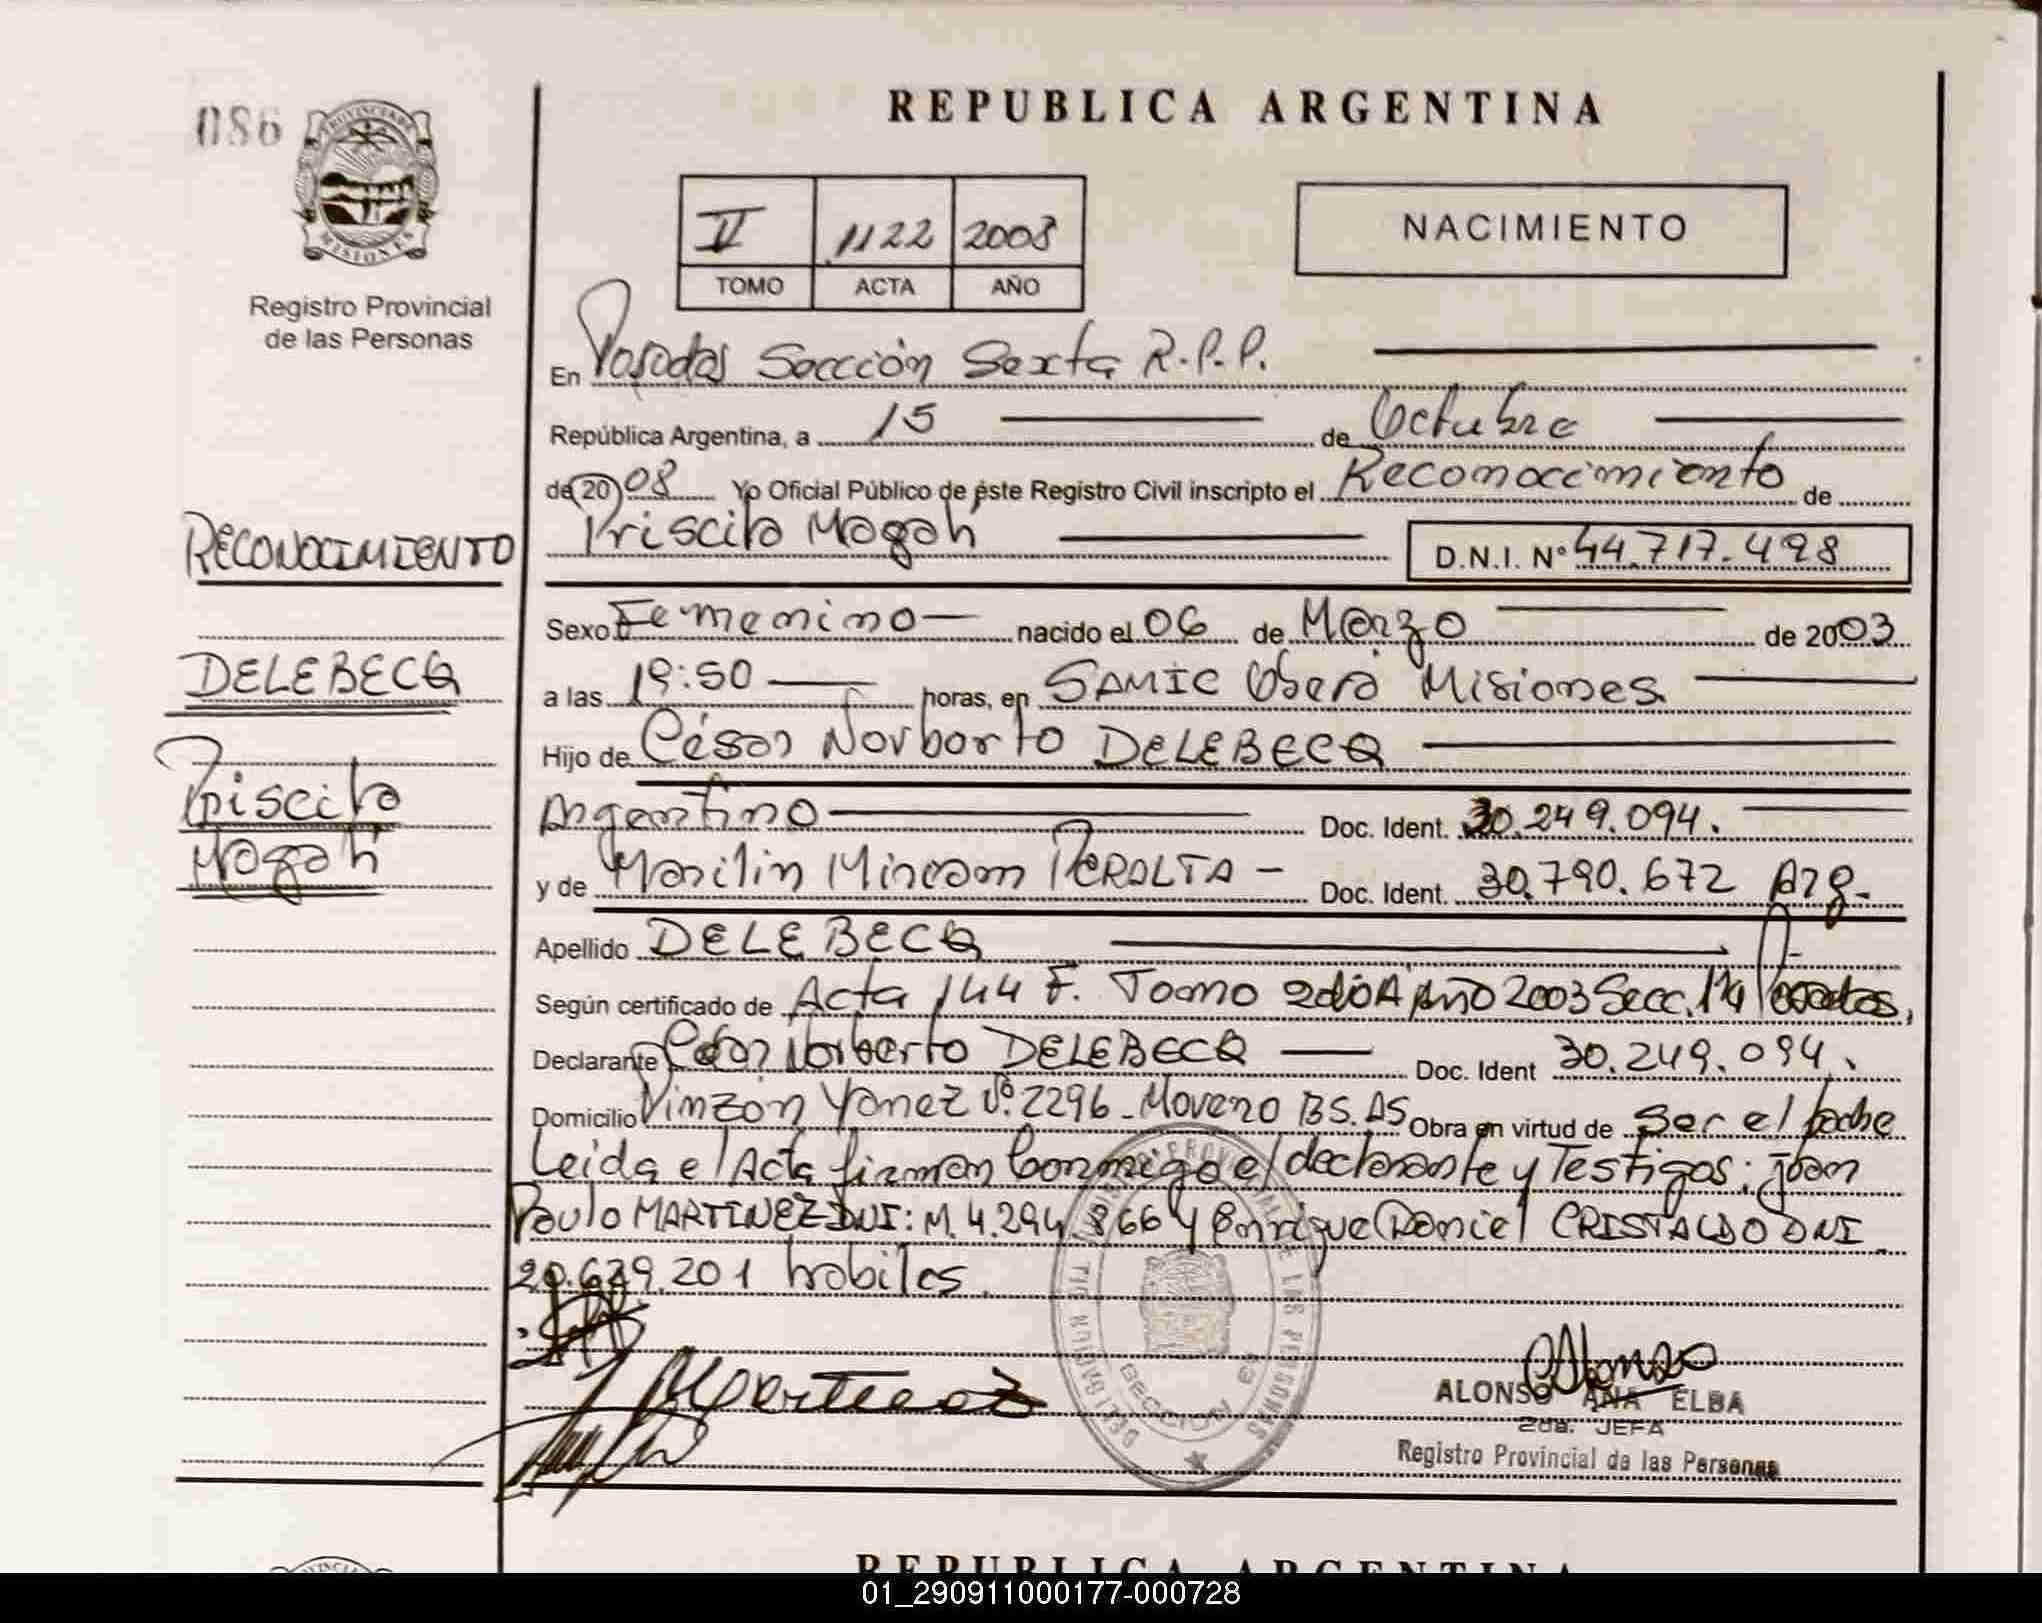 086
PROVINCIA DE
MISIONES
Registro Provincial
de las Personas
REPUBLICA ARGENTINA
V 1122 2008
TOMO ACTA AÑO
NACIMIENTO
En Posadas Sección Sexta R.P.P.
República Argentina, a 15 de Octubre
de (20) 08 Yo Oficial Público de éste Registro Civil inscripto el Reconocimiento de
Priscila Magalí D.N.I. N° 44.717.498
Sexo Femenino nacido el 06 de Marzo de 2003
a las 19:50 horas, en SAMIC Oberá Misiones
Hijo de César Norberto DELEBECQ
Argentino Doc. Ident. 30.249.094.
y de Marilin Miriam PERALTA - Doc. Ident. 30.790.672 Arg.
Apellido DELEBECQ
Según certificado de Acta 144 F. Tomo Año 2003 Secc. 1ra Posadas,
Declarante César Norberto DELEBECQ Doc. Ident 30.249.094.
Domicilio Vinzon Yanez N°. 2296 - Moreno BS. AS Obra en virtud de Ser el padre
Leida el Acta firman conmigo el declarante y Testigos: Juan
Paulo MARTINEZ DNI: M. 4.294.866 y Enrique Daniel CRISTALDO DNI
20.639.201 habiles
RECONOCIMIENTO
DELEBECQ
Priscila
Magalí
ALONSO ANA ELBA
2da. JEFA
Registro Provincial de las Personas
REPUBLICA ARGENTINA
01_290911000177-000728